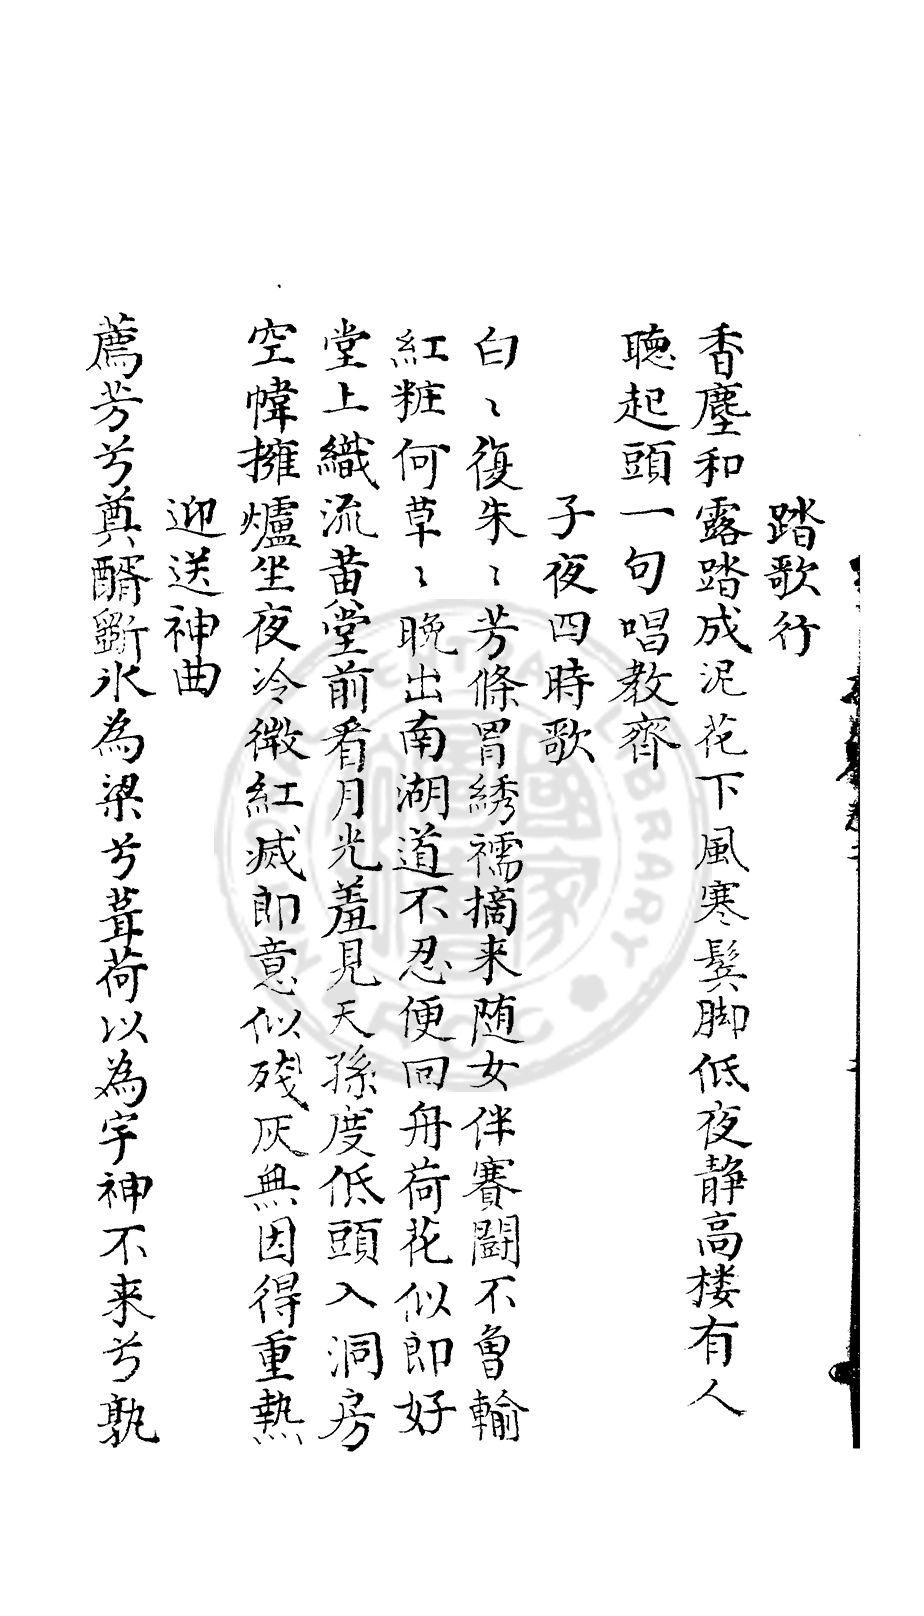 踏歌行
香塵和露踏成泥花下風寒鬓脚低夜静高楼有人
聴起頭一句唱教齊
子夜四時歌
白〻復朱〻芳條罥綉襦摘来随女伴賽鬪不曾輸
紅粧何草〻晚出南湖道不忍便回舟荷花似郎好
堂上織流黄堂前看月光羞見天孫度低頭入洞房
空幃擁爐坐夜冷微紅滅郎意似殘灰無因得重熱
迎送神曲
薦芳兮奠醑斵氷為梁兮葺荷以為宇神不来兮孰
國家圖書館
NATIONAL CENTRAL LIBRARY
ROC